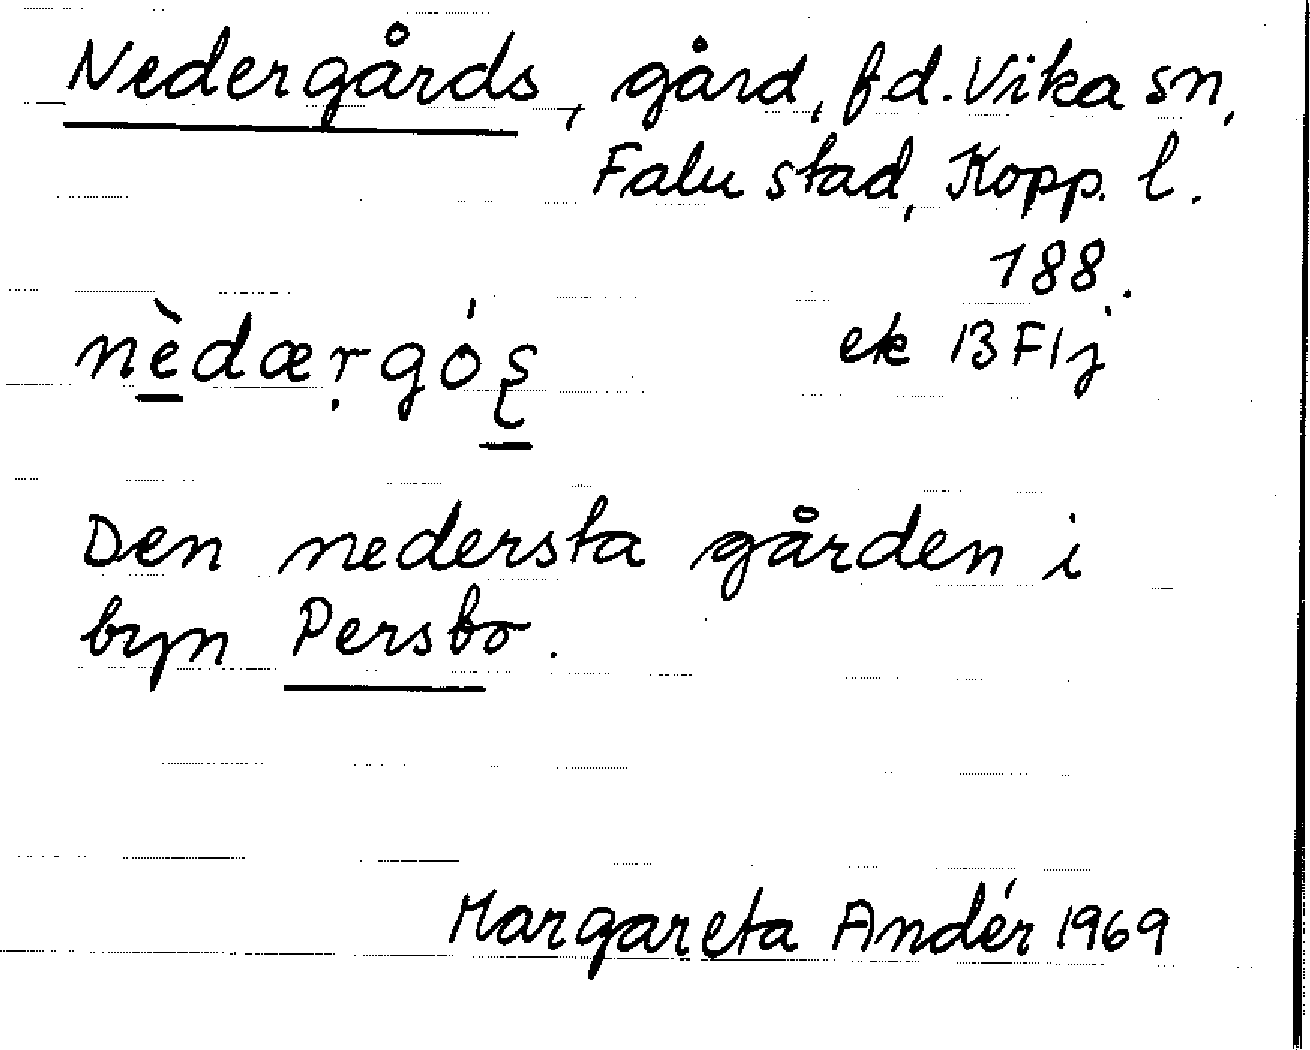 Nedergårds, gård, f.d. Vika sn,
Falu stad, Kopp. l.
188.
nèdærgọ́ʂ
ek 13F1j
Den nedersta gården i
byn Persbo.
Margareta Andér 1969